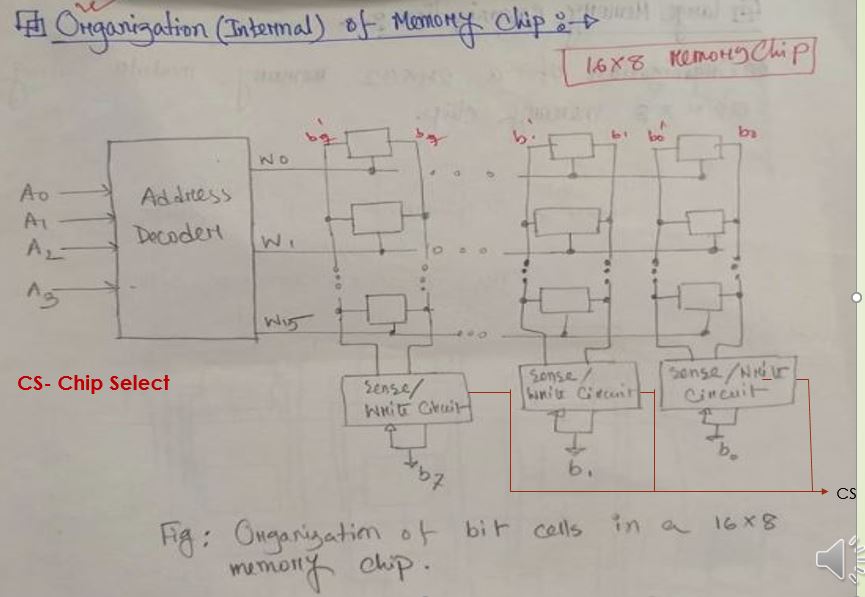 Organization (Internal) of Memory Chip :-
16×8 Memory Chip
b7' b7 b1' b1 b0' b0
A0
A1
A2
A3
Address
Decoder
W0
W1
W15
CS- Chip Select
Sense/
Write Circuit
Sense/
Write Circuit
Sense/Write
Circuit
b7
b1
b0
CS
Fig: Organization of bit cells in a 16×8
memory chip.